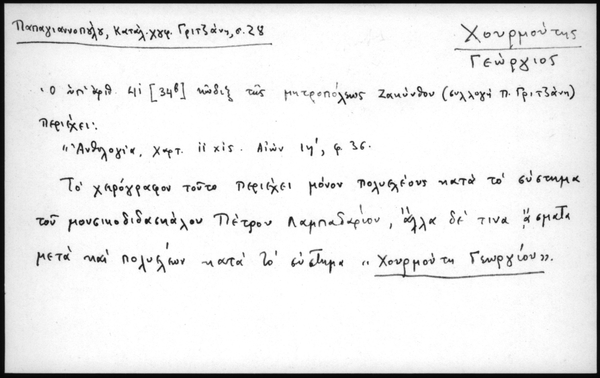 Παπαγιαννοπούλου, Κατάλ. χφφ. Γριτζάνη, σ. 28
Χουρμούτης
Γεώργιος
Ὁ ὑπ' ἀρθ. 41 [34β] κῶδιξ τῆς μητροπόλεως Ζακύνθου (συλλογὴ Π. Γριτζάνη)
περιέχει:
"Ἀνθολογία, Χαρτ. 11 χ15. Αἰών ΙΓ', φ 36.
Τὸ χειρόγραφον τοῦτο περιέχει μόνον πολυελέους κατὰ τὸ σύστημα
τοῦ μουσικοδιδασκάλου Πέτρου Λαμπαδαρίου, ἄλλα δέ τινα ᾄσματα
μετὰ καὶ πολυελέων κατὰ τὸ σύστημα "Χουρμούτη Γεωργίου".